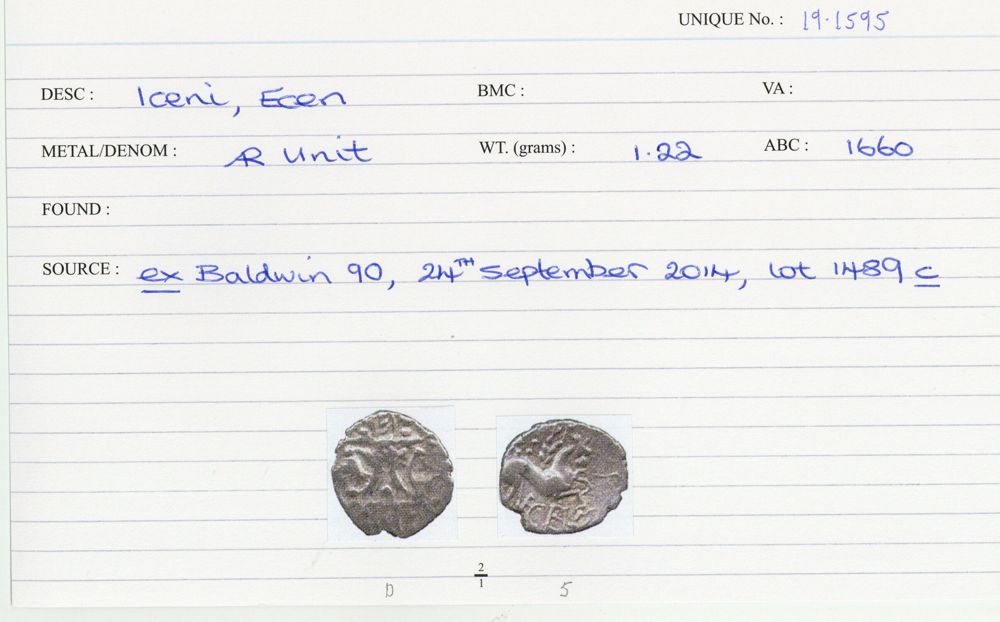 UNIQUE No. : 19.1595
DESC : Iceni, Ecen BMC : VA :
METAL/DENOM : AR Unit WT. (grams) : 1.22 ABC : 1660
FOUND :
SOURCE : ex Baldwin 90, 24TH September 2014, lot 1489 c
2
1
D 5